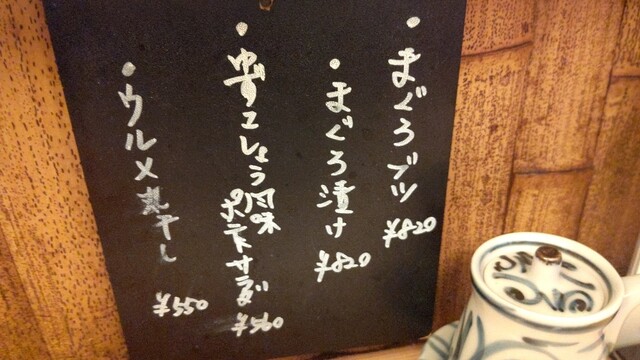 ・まぐろブツ ¥820
・まぐろ漬け ¥820
・ゆずこしょう風味
ポテトサラダ ¥560
・ウルメ丸干し ¥550